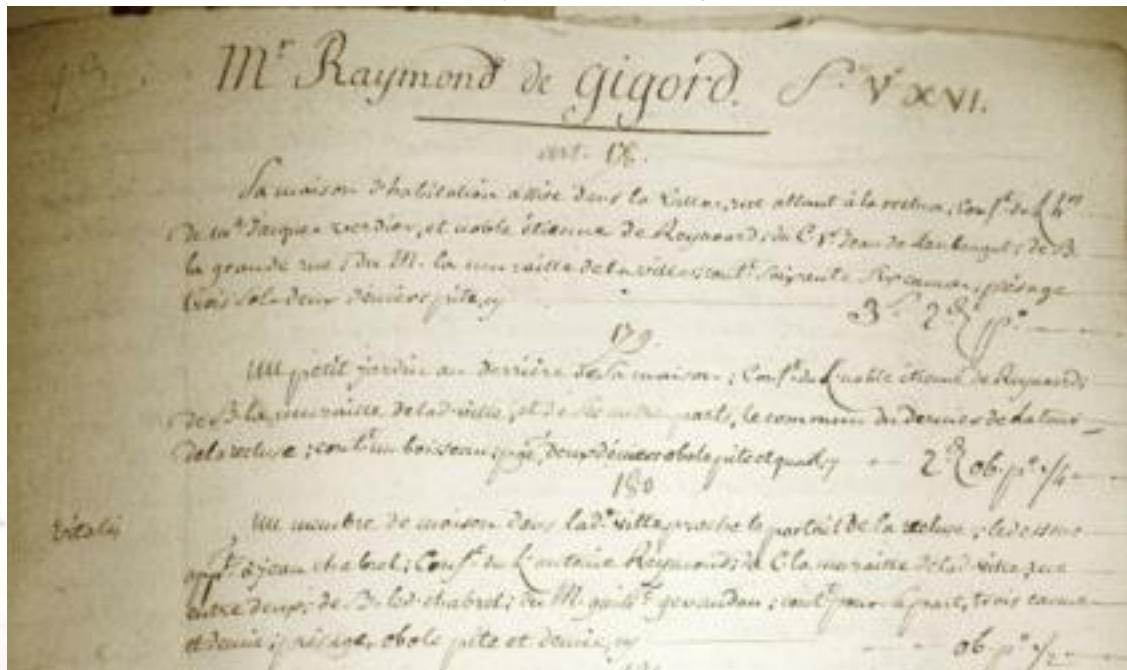 Mr Raymond de gigord. Sr V XVI.
art. 178.
Sa maison d'habitation assise dans la ville, rue allant à la recluse; Conft du L hrs
de mre Jacques verdier, et noble étienne de Reymond; du C Vt Jean de; de B
la grande rue; du M. la muraille de la ville; contt soixante six cannes; présage
trois sols deux deniers pite, cy
3s 2d pe
179.
Un petit jardin au derrière de sa maison; Confte du L noble étienne de Reymond;
de B la muraille de lad ville, et des autres parts, le commun du derrier de la tour
de la recluse; contt un boisseau; pge deux deniers obole pite et quart, cy 2d ob. pe 1/4
180
vitalis
Un membre de maison dans lade ville proche le portail de la recluse; le dessus
appt à jean chabrol; Conft du L antoine Reymond; de C la muraille de lad ville, rue
entre deux; de B led chabrol; du M. gevaudan; contt pour sa part, trois cannes
et demie; présage, obole pite et demie, cy ob. pe 1/2